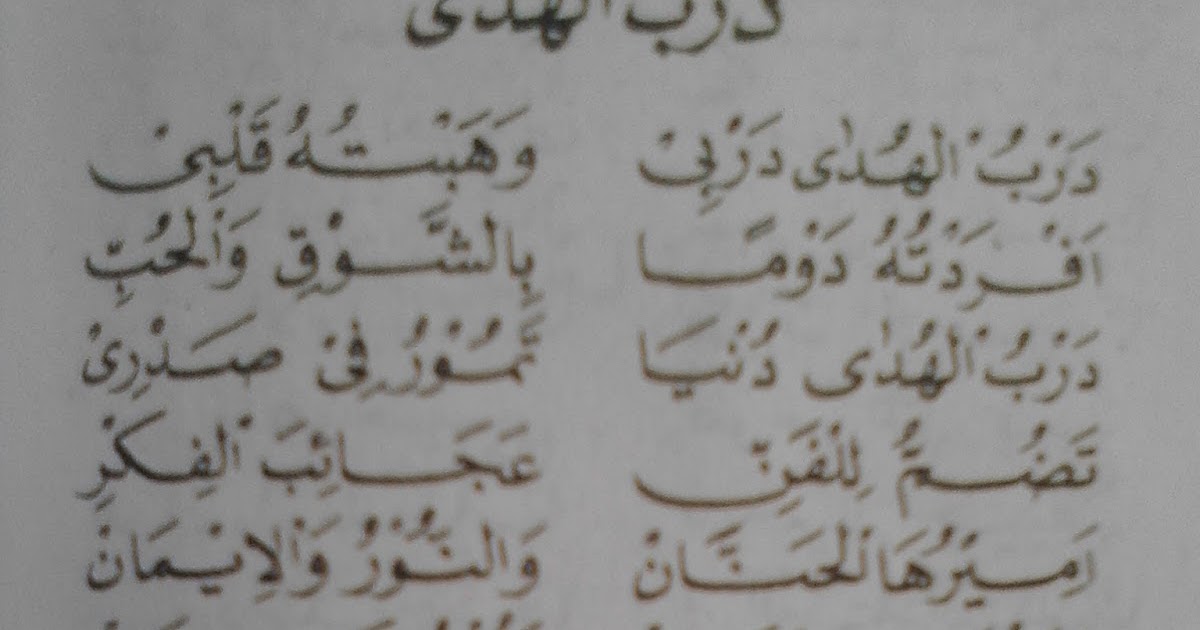 درب الهدى
دَرْبُ الْهُدٰى دَرْبِيْ وَهَبْتُهُ قَلْبِيْ
اَفْرَدْتُهُ دَوْمًا بِالشَّوْقِ وَالْحُبِّ
دَرْبُ الْهُدٰى دُنْيَا تَمُوْرُ فِيْ صَدْرِيْ
تَضُمُّ لِلْفَنِّ عَجَائِبَ الْفِكْرِ
اَمِيْرُهَا الْحَنَّانْ وَالنُّوْرُ وَالْاِيْمَانْ